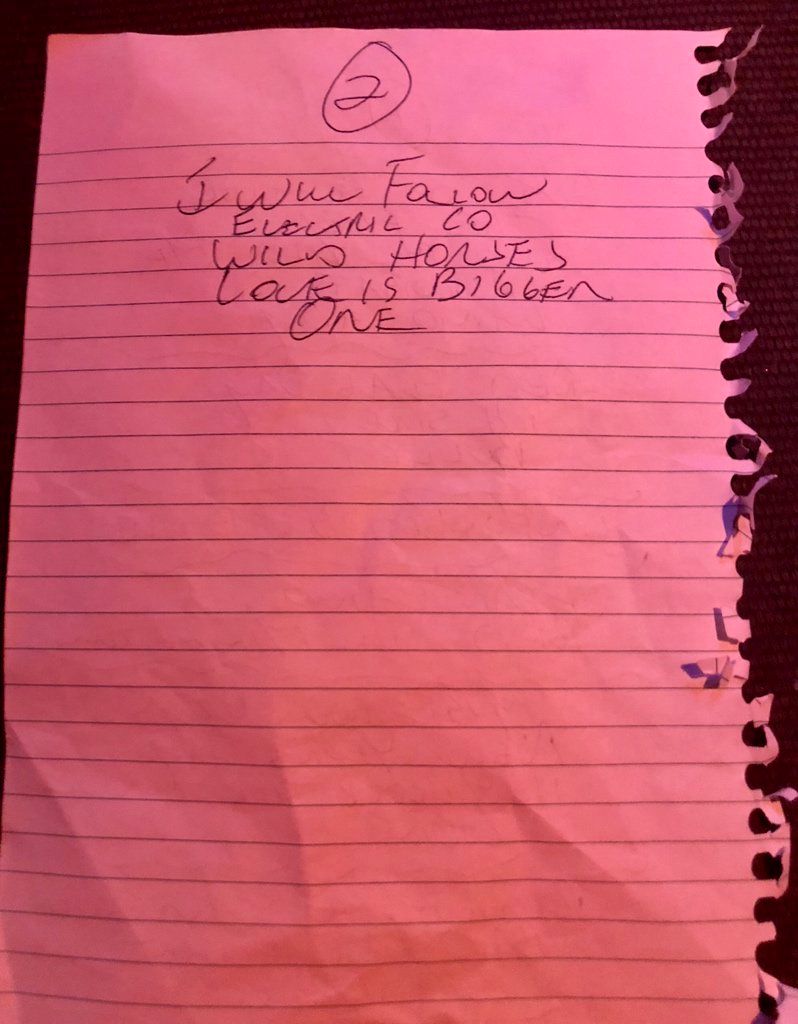 2
I WILL FOLLOW
ELECTRIC CO
WILD HORSES
LOVE IS BIGGER
ONE